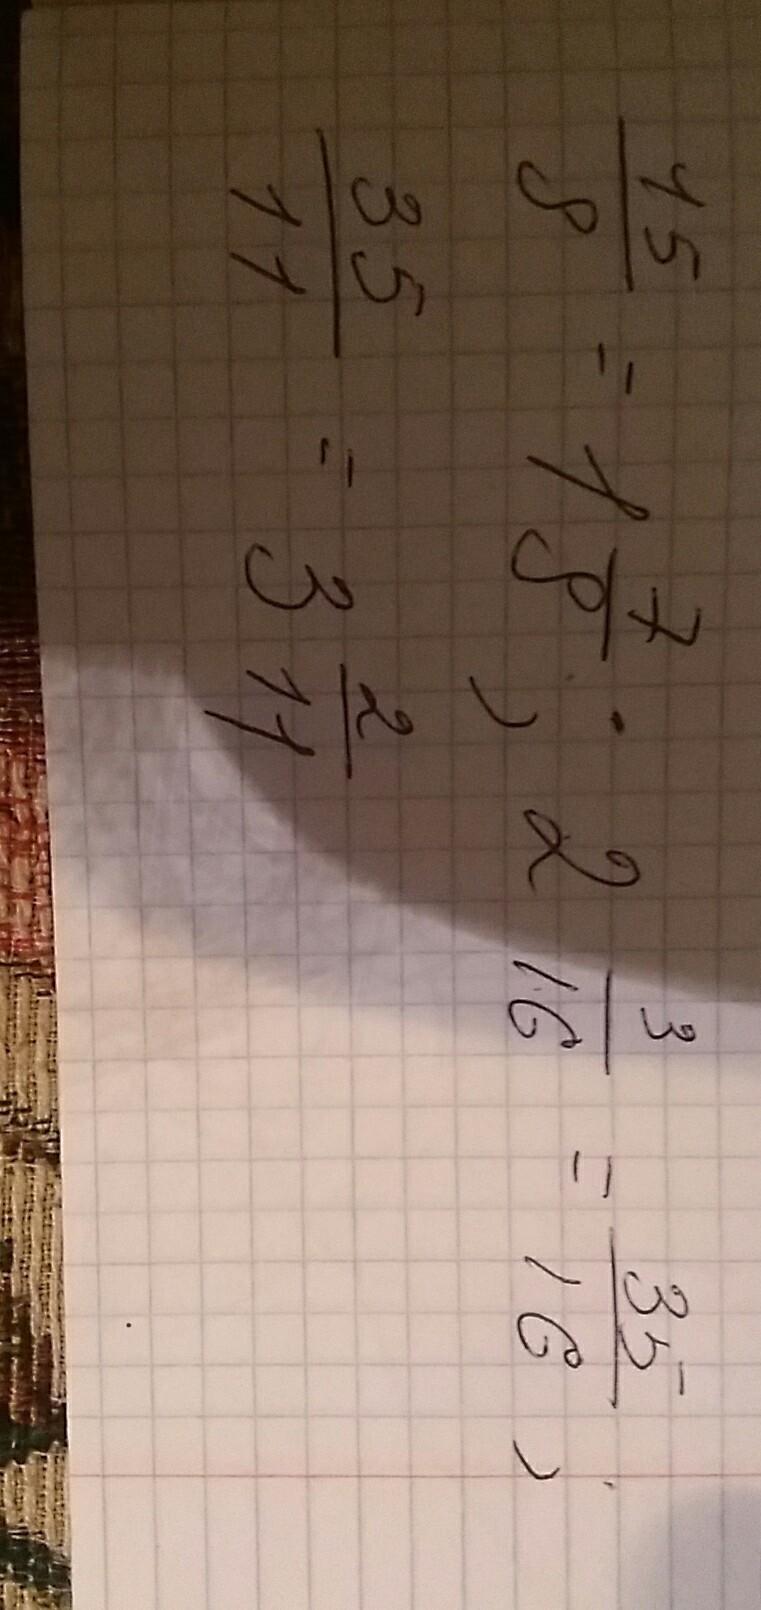 15/8 = 1 7/8; 2 3/16 = 35/16;
35/11 = 3 2/11